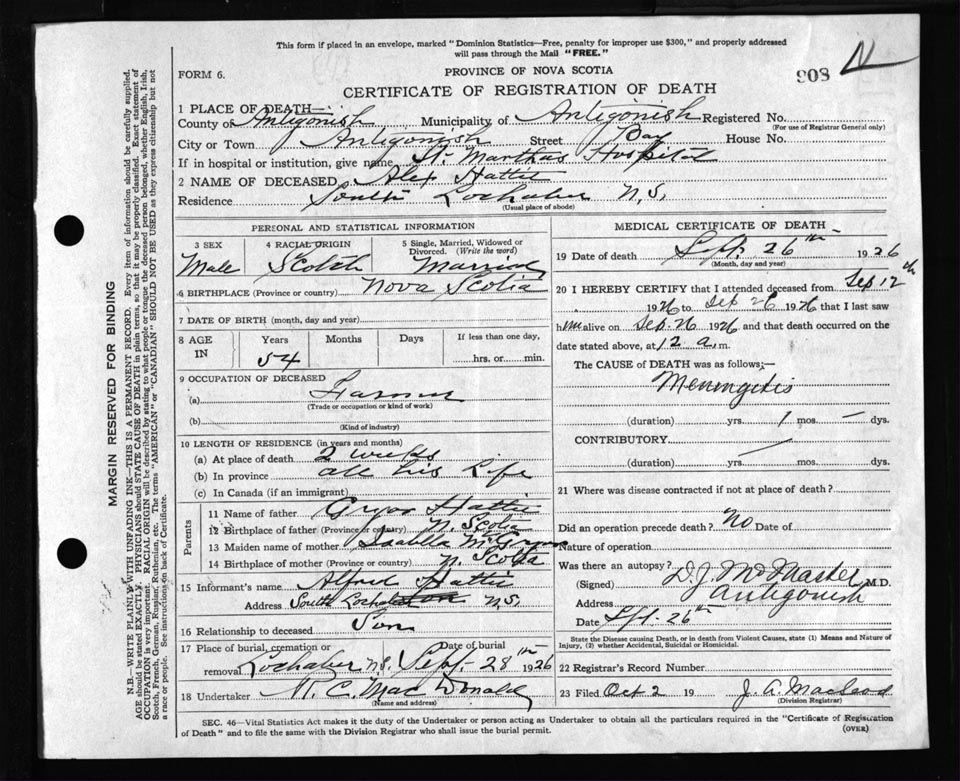 This form if placed in an envelope, marked "Dominion Statistics—Free, penalty for improper use $300," and properly addressed
will pass through the Mail "FREE."
FORM 6.
PROVINCE OF NOVA SCOTIA
908 N
CERTIFICATE OF REGISTRATION OF DEATH
1 PLACE OF DEATH—
County of Antigonish Municipality of Antigonish Registered No.
(For use of Registrar General only)
City or Town Antigonish Street Bay House No.
If in hospital or institution, give name St. Marthas Hospital
2 NAME OF DECEASED Alex Hattie
Residence South Lochaber N.S.
(Usual place of abode)
PERSONAL AND STATISTICAL INFORMATION
3 SEX 4 RACIAL ORIGIN 5 Single, Married, Widowed or
Divorced. (Write the word)
Male Scotch Married
6 BIRTHPLACE (Province or country) Nova Scotia
7 DATE OF BIRTH (month, day and year)
8 AGE IN Years Months Days If less than one day,
54 hrs. or min.
9 OCCUPATION OF DECEASED
(a) Farmer
(Trade or occupation or kind of work)
(b)
(Kind of industry)
10 LENGTH OF RESIDENCE (in years and months)
(a) At place of death 2 weeks
(b) In province all his Life
(c) In Canada (if an immigrant)
Parents
11 Name of father Hattie
12 Birthplace of father (Province or country) N. Scotia
13 Maiden name of mother Isabella
14 Birthplace of mother (Province or country) N. Scotia
15 Informant's name Alfred Hattie
Address South Lochaber N.S.
16 Relationship to deceased Son
17 Place of burial, cremation or removal Lochaber N.S. Date of burial Sept. 28th 1926
18 Undertaker MacDonald
(Name and address)
MEDICAL CERTIFICATE OF DEATH
19 Date of death Sept. 26th 1926
(Month, day and year)
20 I HEREBY CERTIFY that I attended deceased from Sep 12th
1926 to Sep 26 1926 that I last saw
him alive on Sep. 26 1926 and that death occurred on
date stated above, at 12 a.m.
The CAUSE of DEATH was as follows:—
Meningitis
(duration) yrs. 1 mos. — dys.
CONTRIBUTORY
(duration) yrs. mos. dys.
21 Where was disease contracted if not at place of death?
Did an operation precede death? No Date of
Nature of operation
Was there an autopsy?
(Signed) D. J. McMaster M.D.
Address Antigonish
Date Sept. 26th
State the Disease causing Death, or in death from Violent Causes, state (1) Means and Nature of
Injury, (2) whether Accidental, Suicidal or Homicidal.
22 Registrar's Record Number
23 Filed Oct 2 19 J. A. Macleod
(Division Registrar)
SEC. 46—Vital Statistics Act makes it the duty of the Undertaker or person acting as Undertaker to obtain all the particulars required in the "Certificate of Registration
of Death" and to file the same with the Division Registrar who shall issue the burial permit.
(OVER)
MARGIN RESERVED FOR BINDING
N.B.—WRITE PLAINLY WITH UNFADING INK—THIS IS A PERMANENT RECORD. Every item of information should be carefully supplied.
AGE should be stated EXACTLY. PHYSICIANS should STATE CAUSE OF DEATH in plain terms, so that it may be properly classified. Exact statement of
OCCUPATION is very important. RACIAL ORIGIN will be described by stating to what people or tongue the deceased person belonged, whether English, Irish,
Scotch, French, German, Russian, Ruthenian, etc. The terms "AMERICAN" or "CANADIAN" SHOULD NOT BE USED as they express citizenship but not
a race or people. See instructions on back of Certificate.